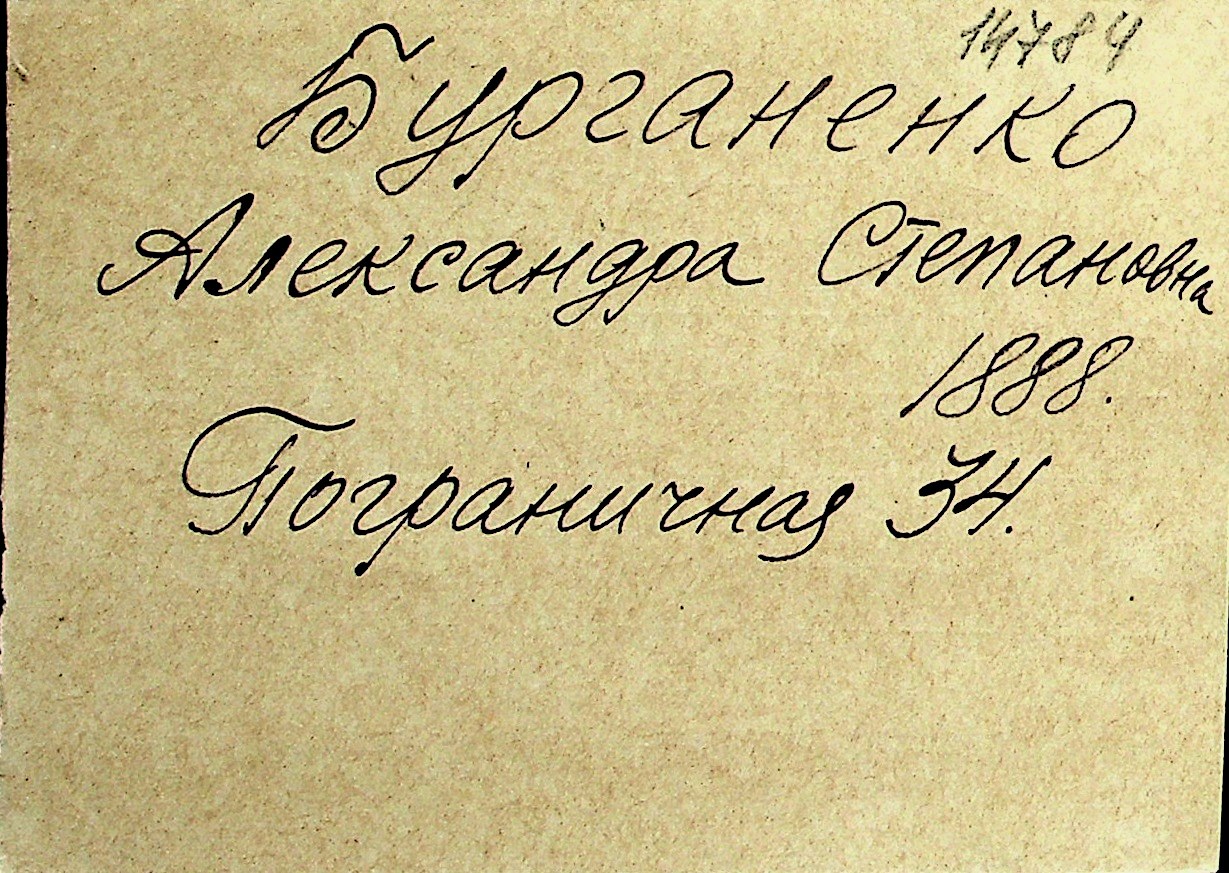 14784
Бурганенко
Александра Степановна
1888.
Пограничная 34.